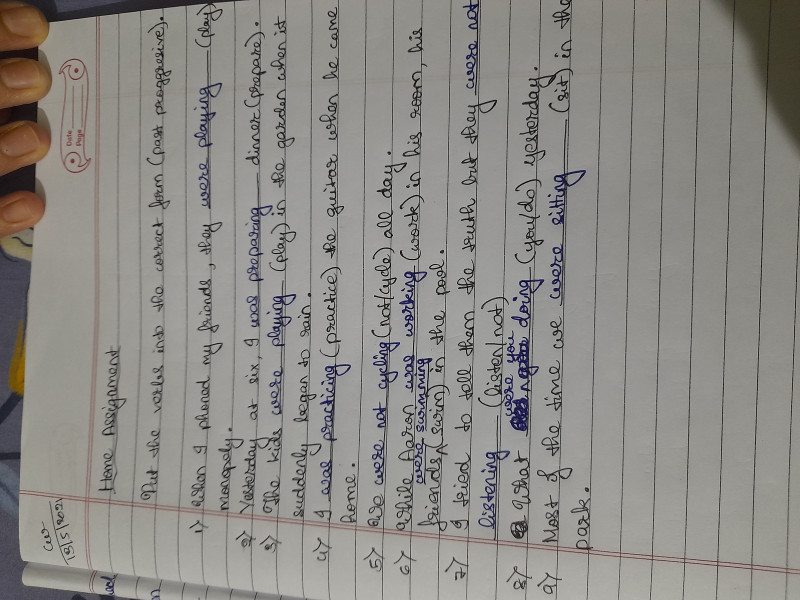 CW
13/5/2021
Date
Page
Home Assignment
Put the verbs into the correct form (past progressive).
1) When I phoned my friends, they were playing (play)
monopoly.
2) Yesterday at six, I was preparing dinner (prepare).
3) The kids were playing (play) in the garden when it
suddenly began to rain.
4) I was practicing (practice) the guitar when he came
home.
5) We were not cycling (not/cycle) all day.
6) While Aaron was working (work) in his room, his
were swimming
friends ^ (swim) in the pool.
7) I tried to tell them the truth but they were not
listening (listen/not)
were you
8) What doing (you/do) yesterday.
9) Most of the time we were sitting (sit) in the
park.